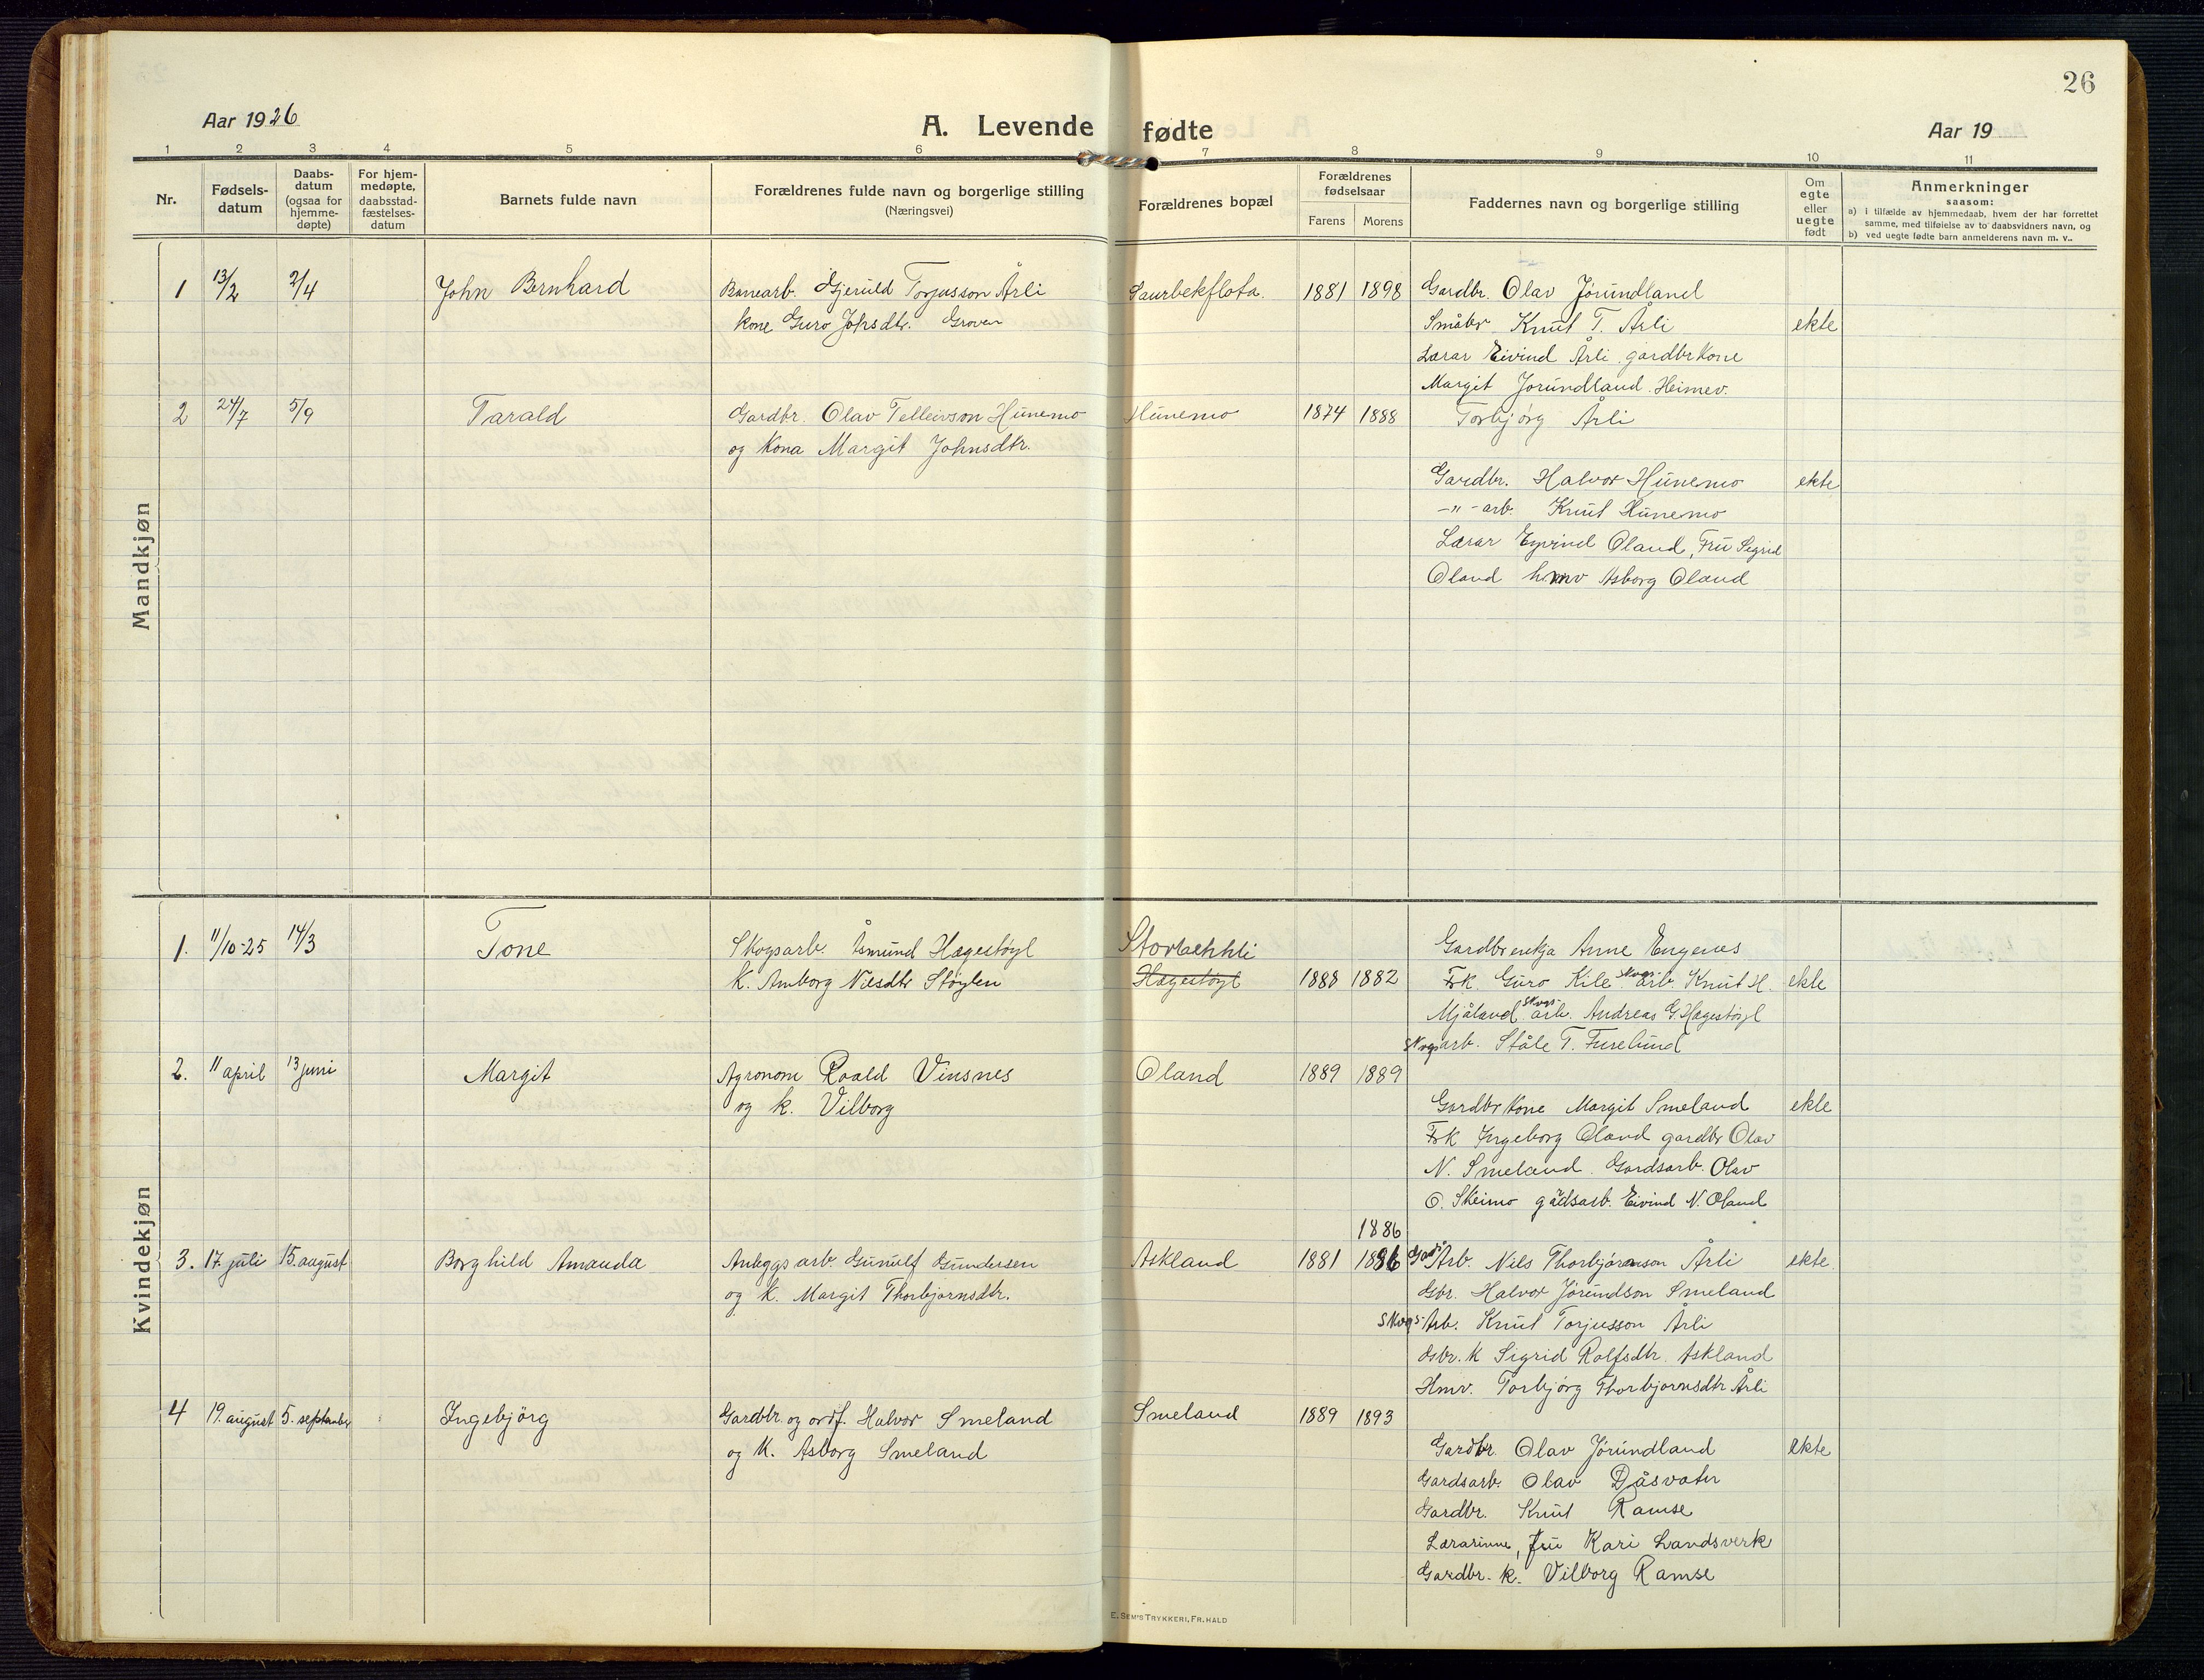 26
Aar 1926
A. Levende fødte
Aar 19
1 2 3 4 5 6 7 8 9 10 11
Nr.
Fødsels-
datum
Daabs-
datum
(ogsaa for
hjemme-
døpte)
For hjem-
medøpte,
daabsstad-
fæstelses-
datum
Barnets fulde navn
Forældrenes fulde navn og borgerlige stilling
(Næringsvei)
Forældrenes bopæl
Forældrenes
fødselsaar
Farens Morens
Faddernes navn og borgerlige stilling
Om
egte
eller
uegte
født
Anmerkninger
saasom:
a) i tilfælde av hjemmedaab, hvem der har forrettet
samme, med tilføielse av to daabsvidners navn, og
b) ved uegte fødte barn anmelderens navn m. v..
Mandkjøn
1 13/2 2/4 John Bernhard Banearb. Gjeruld Torjusson Årli Saurbekflota. 1881 1898 Gardbr. Olav Jørundland
kone Guro Johsdtr. Groven Småbr Knut T. Årli ekte
Lærar Eivind Årli gardbrkone
Margit Jørundland. Heimev.
2 24/7 5/9 Tarald Gardbr. Olav Telleivson Hunemo Hunemo 1874 1888 Torbjørg Årli
og kona Margit Johnsdtr.
Gardbr. Halvor Hunemo ekte
-"- arb. Knut Hunemo
Lærar Eyvind Oland, Fru Sigrid
Oland hmv Asborg Oland
Kvindekjøn
1. 11/10-25 14/3 Tone Skogsarb. Åsmund Hægestøyl Storbekkli Gardbrenkja Anne Engenes
K. Amborg Nilsdtr Støylen Hægestøyl 1888 1882 Frk. Guro Kile skogs-arb. Knut H. ekte
Mjåland skogs-arb. Andreas G. Hægestøyl
Skogsarb. Ståle T. Furelund
2. 11 april 13 juni Margit Agronom Roald Vinsnes Oland 1889 1889
og k. Vilborg Gardbrkone Margit Smeland ekte
Frk Ingeborg Oland gardbr Olav
N. Smeland. Gardsarb. Olav
O. Skeimo gardsarb. Eivind N. Oland
1886
3. 17. juli 15. august Borghild Amanda Anleggsarb. Gunulf Gundersen Askland 1881 1886 Arb. Nils Thorbjørnson Årli ekte.
og K. Margit Thorbjørnsdtr. Gbr. Halvor Jørundson Smeland
Skogs-Arb. Knut Torjusson Årli
Gbr. K Sigrid Rolfsdtr. Askland
Hmv. Torbjørg Thorbjørnsdtr Årli
4 19. august 5. september Ingebjørg Gardbr. og ordf. Halvor Smeland Smeland 1889 1893
og K. Asborg Smeland Gardbr. Olav Jørundland ekte
Gardsarb. Olav Dåsvatn
Gardbr. Knut Ramse
Lærarinne, fru Kari Landsverk
Gardbr. k. Vilborg Ramse
E. SEM'S TRYKKERI, FR. HALD